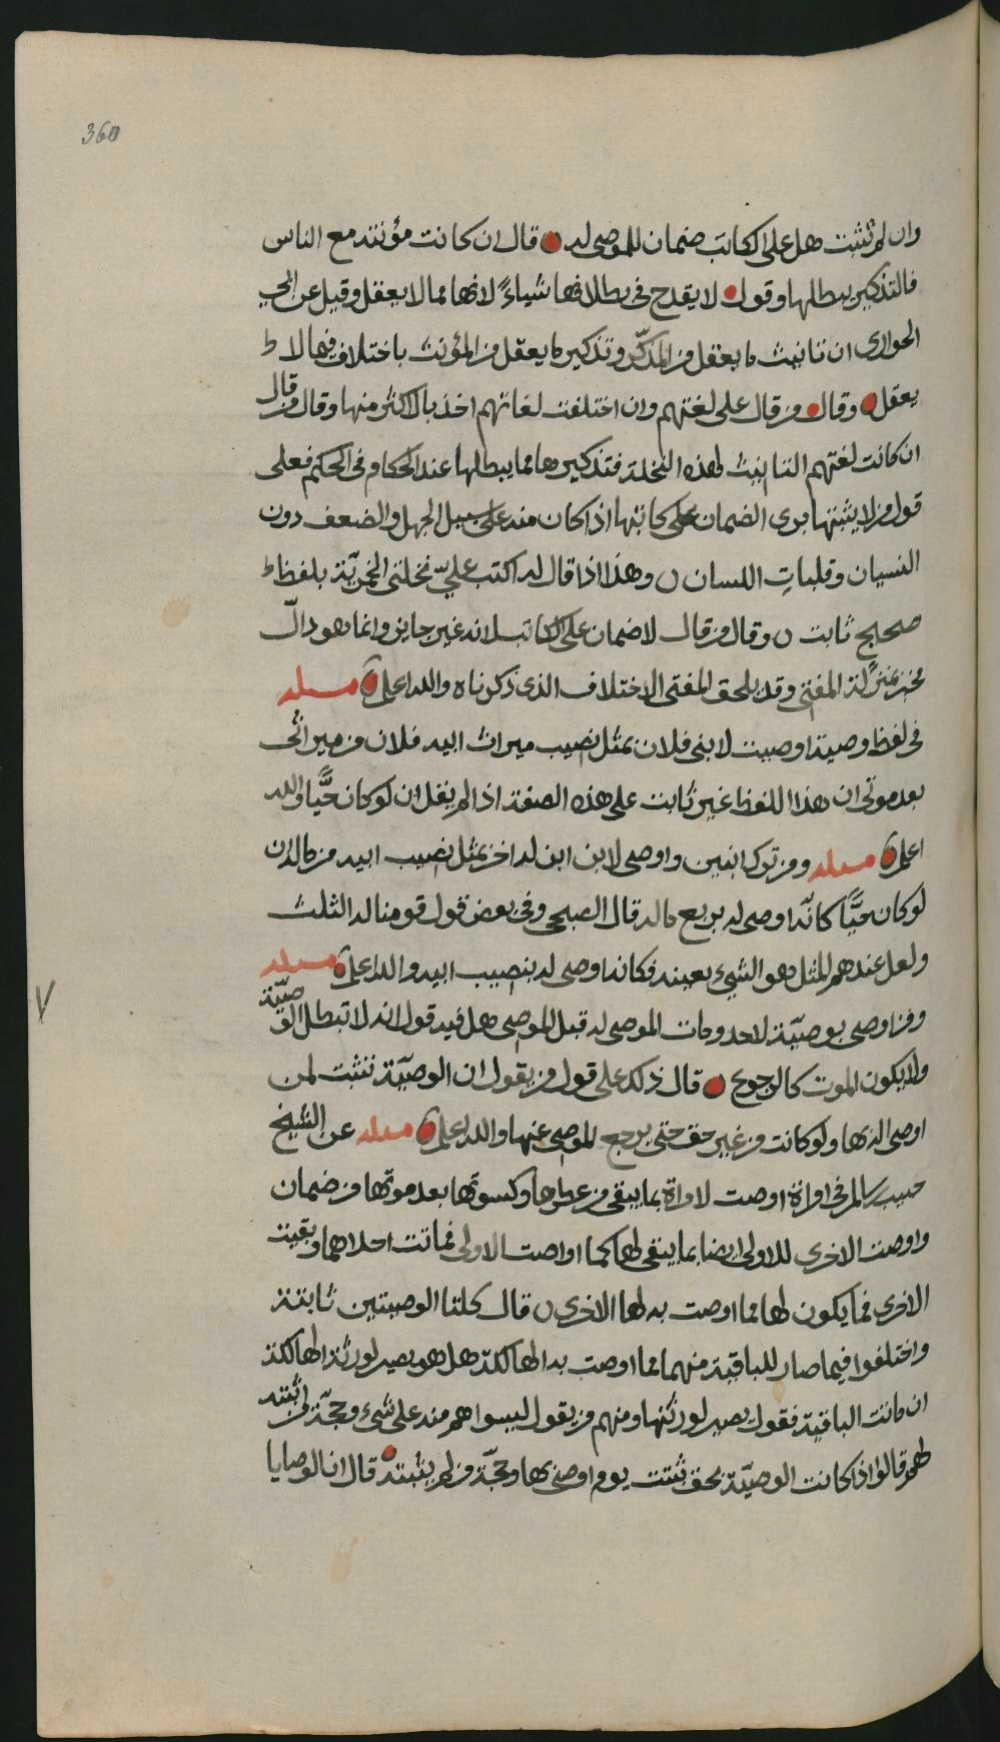 360
وان لم تثبت هل على الكاتب ضمان للموصى له قال ان كانت مؤنثه مع الناس
فالتذكير يبطلها وقول لا يقدح في بطلانها شياءً لانها مما لا يعقل وقيل عن ابي
الحواري ان تانيث ما يعقل من المذكّر وتذكير ما يعقل من المؤنث باختلاف فيما لا
يعقل وقال من قال على لغتهم وان اختلفت لغاتهم اخذ بالاكثر منها وقال من قال
ان كانت لغتهم التانيث لهذه النخلة فتذكيرها مما يبطلها عند الحكام وفي الحكم فعلى
قول من لا يثبتها يرى الضمان على كاتبها اذا كان منه على سبيل الجهل والضعف دون
النسيان وقلبات اللسان وهذا اذا قال له اكتب عليّ نخلتي الخمريّة بلفظ
صحيح ثابت وقال من قال لا ضمان على الكاتب لانه غير جابر وانما هو دالّ
بمنزلة المفتي وقد يلحق المفتي الاختلاف الذي ذكرناه والله اعلم مسلة
في لفظ وصية اوصيت لابني فلان بمثل نصيب ميراث ابيه فلان من ميراثي
بعد موتي ان هذا اللفظ غير ثابت على هذه الصفة اذا لم يقل ان لو كان حيًّا والله
اعلم مسلة ومن ترك ابنين واوصى لابن ابن له اخر بمثل نصيب ابيه من ماله ان
لو كان حيًّا كانّه اوصى له بربع ماله قال الصبحي وفي بعض قول قومنا له الثلث
ولعل عندهم المثل هو الشيء بعينه فكانه اوصى له بنصيب ابيه والله اعلم مسلة
ومن اوصى بوصيّة لاحد ومات الموصى له قبل الموصي هل فيه قول انه لا تبطل الوصيّة
ولا يكون الموت كالرجوع قال ذلك على قول من يقول ان الوصيّة تثبت لمن
اوصى له بها ولو كانت من غير حق حتى يرجع الموصي عنها والله اعلم مسلة عن الشيخ
حبيب بن سالم في امراة اوصت لامراة بما يبقى من عطرها وكسوتها بعد موتها من ضمان
واوصت الاخرى للاولى ايضا بما يبقى لها كما اوصت الاولى فماتت احداهما وبقيت
الاخرى فما يكون لها مما اوصت به لها الاخرى قال كلتا الوصيتين ثابتة
واختلفوا فيما صار للباقية منهما مما اوصت به الهالكة هل هو يصير لورثة الهالكة
ان ماتت الباقية فقول يصير لورثتها ومنهم من يقول ليسوا هم منه على شيء وحجّة من اثبته
لهم قالوا اذا كانت الوصيّة بحق ثبتت يوم اوصى بها وحجّة من لم يثبته قال ان الوصايا